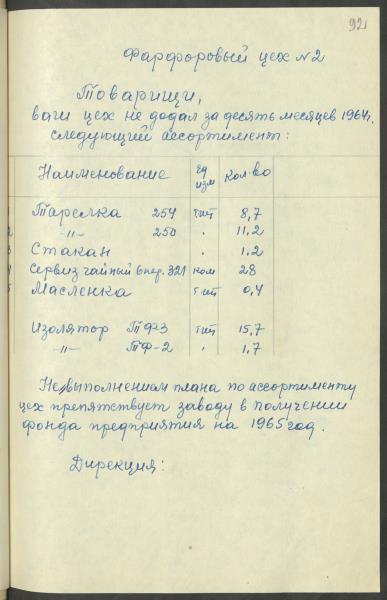 92
Фарфоровый цех N 2
Товарищи,
ваш цех не додал за десять месяцев 1964г.
следующий ассортимент:
Наименование ед изм Кол-во
1 Тарелка 254 т.шт 8,7
2 -"- 250 " 11,2
3 Стакан " 1,2
4 Сервиз чайный 6 пер. 321 ком 28
5 Масленка т.шт 0,4
Изолятор ТФ3 т.шт 15,7
-"- ТФ-2 " 1,7
Невыполнением плана по ассортименту
цех препятствует заводу в получении
фонда предприятия на 1965 год.
Дирекция: